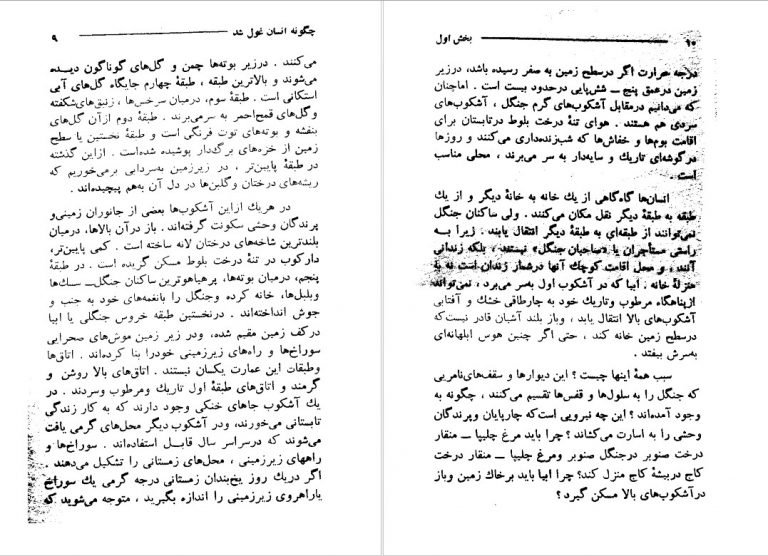 چگونه انسان غول شد ۹
می‌کنند . درزیر بوته‌ها چمن و گل‌های گوناگون دیده
می‌شوند و بالاترین طبقه ، طبقهٔ چهارم جایگاه گل‌های آبی
استکانی است . طبقهٔ سوم، درمیان سرخس‌ها ، زنبق‌های‌شکفته
وگل‌های قمح‌احمر به سرمی‌برند . طبقهٔ دوم ازآن گل‌های
بنفشه و بوته‌های توت فرنگی است و طبقهٔ نخستین یا سطح
زمین از خزه‌های برگ‌دار پوشیده شده‌است . ازاین گذشته
در طبقهٔ پایین‌تر ، در زیرزمین به‌سردابی برمی‌خوریم که
ریشه‌های درختان وگلبن‌ها در دل آن به‌هم پیچیده‌اند .
در هریك ازاین آشکوب‌ها بعضی از جانوران زمینی و
پرندگان وحشی سکونت گرفته‌اند . باز درآن بالاها، درمیان
بلندترین شاخه‌های درختان لانه ساخته است . کمی پایین‌تر،
دارکوب در تنهٔ درخت بلوط مسکن گزیده است . در طبقهٔ
پنجم، درمیان بوته‌ها، پرهیاهوترین ساکنان جنگل ـ سسك‌ها
وبلبل‌ها، خانه کرده وجنگل را بانغمه‌های خود به جنب و
جوش انداخته‌اند . درنخستین طبقه خروس جنگلی یا ابیا
درکف زمین مقیم شده، ودر زیر زمین موش‌های صحرایی
سوراخ‌ها و راه‌های زیرزمینی خودرا بنا کرده‌اند . اتاق‌ها
وطبقات این عمارت یکسان نیستند . اتاق‌های بالا روشن و
گرمند و اتاق‌های طبقهٔ اول تاریك ومرطوب وسردند . در
یك آشکوب جاهای خنکی وجود دارند که به کار زندگی
تابستانی می‌خورند، ودر آشکوب دیگر محل‌های گرمی یافت
می‌شوند که درسراسر سال قابل استفاده‌اند . سوراخ‌ها و
راههای زیرزمینی ، محل‌های زمستانی را تشکیل می‌دهند .
اگر دریك روز یخ‌بندان زمستانی درجه گرمی یك سوراخ
یاراهروی زیرزمینی را اندازه بگیرید ، متوجه می‌شوید که
۱۰ بخش اول
درجه حرارت اگر درسطح زمین به صفر رسیده باشد، درزیر
زمین درعمق پنج ــ شش‌پایی درحدود بیست است . اماچنان
که می‌دانیم درمقابل آشکوب‌های گرم جنگل ، آشکوب‌های
سردی هم هستند . هوای تنهٔ درخت بلوط درتابستان برای
اقامت بوم‌ها و خفاش‌ها که شب‌زنده‌داری می‌کنند و روزها
درگوشه‌ای تاریك و سایه‌دار به سر می‌برند ، محلی مناسب
است
انسان‌ها گاه‌گاهی از یك خانه به خانهٔ دیگر و از یك
طبقه به طبقهٔ دیگر نقل مکان می‌کنند . ولی ساکنان جنگل
نمی‌توانند از طبقه‌ای به طبقهٔ دیگر انتقال یابند . زیرا به
راستی مستأجران یا «صاحبان جنگل» نیستند ، بلکه زندانی
آنند ، و محل اقامت کوچك آنها درشمار زندان است نه به
منزلهٔ خانه . ابیا که در آشکوب اول به‌سر می‌برد ، نمی‌تواند
ازپناهگاه مرطوب وتاریك خود به چارطاقی خشك و آفتابی
آشکوب‌های بالا انتقال یابد ، وباز بلند آشیان قادر نیست‌که
درسطح زمین خانه کند ، حتی اگر چنین هوس ابلهانه‌ای
به‌سرش بیفتد .
سبب همهٔ اینها چیست ؟ این دیوارها و سقف‌های‌نامریی
که جنگل را به سلول‌ها و قفس‌ها تقسیم می‌کنند ، چگونه به
وجود آمده‌اند ؟ این چه نیرویی است‌که چارپایان وپرندگان
وحشی را به اسارت می‌کشاند ؟ چرا باید مرغ چلیپا ــ منقار
درخت صنوبر درجنگل صنوبر ومرغ چلیپا ــ منقار درخت
کاج دربیشهٔ کاج منزل کند؟ چرا ابیا باید برخاك زمین وباز
درآشکوب‌های بالا مسکن گیرد ؟